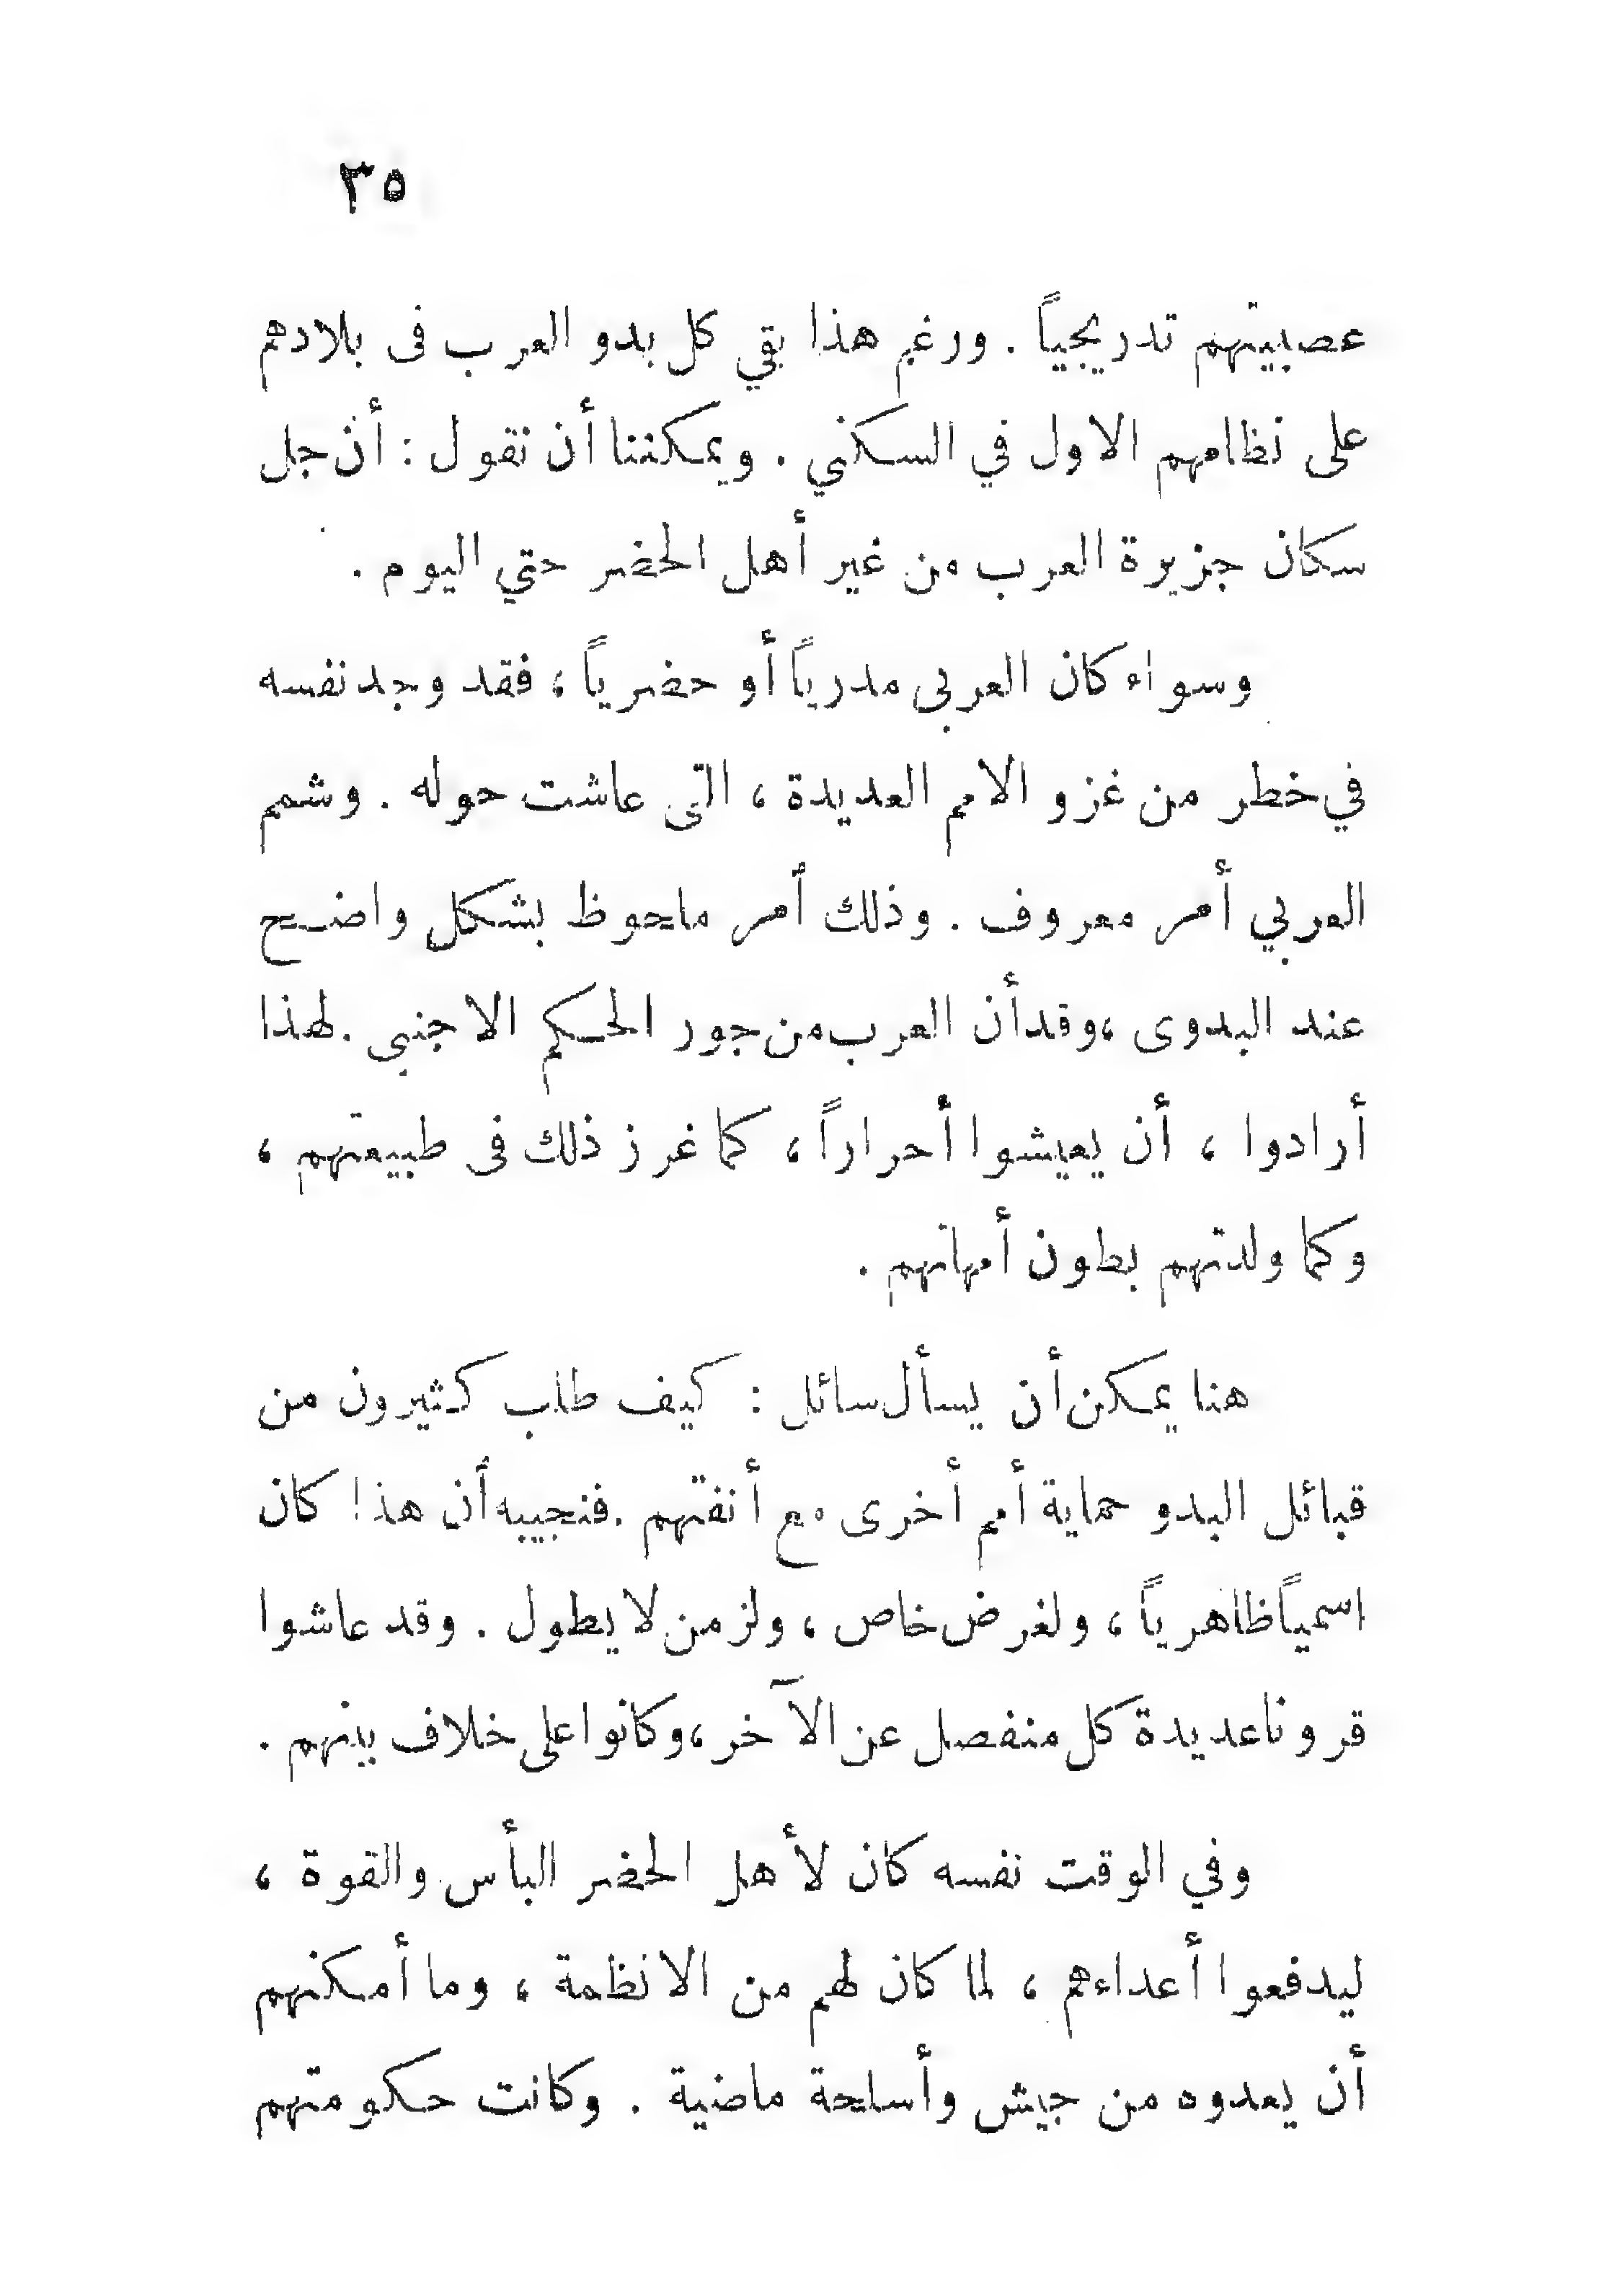 ٣٥
عصبيتهم تدريجياً . ورغم هذا بقي كل بدو العرب فى بلادهم
على نظامهم الاول في السكني . ويمكننا أن نقول : أن جل
سكان جزيرة العرب من غير أهل الحضر حتي اليوم .
وسواء كان العربى مدرياً أو حضرياً ، فقد وجد نفسه
في خطر من غزو الامم العديدة ، التى عاشت حوله . وشمم
العربي أمر معروف . وذلك أمر ملحوظ بشكل واضح
عند البدوى ، وقد أن العرب من جور الحكم الاجنبى . لهذا
أرادوا ، أن يعيشوا أحراراً ، كما غرز ذلك فى طبيعتهم ،
وكما ولدتهم بطون أمهاتهم .
هنا يمكن أن يسأل سائل : كيف طلب كثيرون من
قبائل البدو حماية أمم أخرى مع أنفتهم . فنجيبه أن هذا كان
اسمياً ظاهرياً ، ولغرض خاص ، ولزمن لا يطول . وقد عاشوا
قرونا عديدة كل منفصل عن الآخر ، وكانوا على خلاف بينهم .
وفي الوقت نفسه كان لأهل الحضر البأس والقوة ،
ليدفعوا أعداءهم ، لما كان لهم من الانظمة ، وما أمكنهم
أن يعدوه من جيش وأسلحة ماضية . وكانت حكومتهم